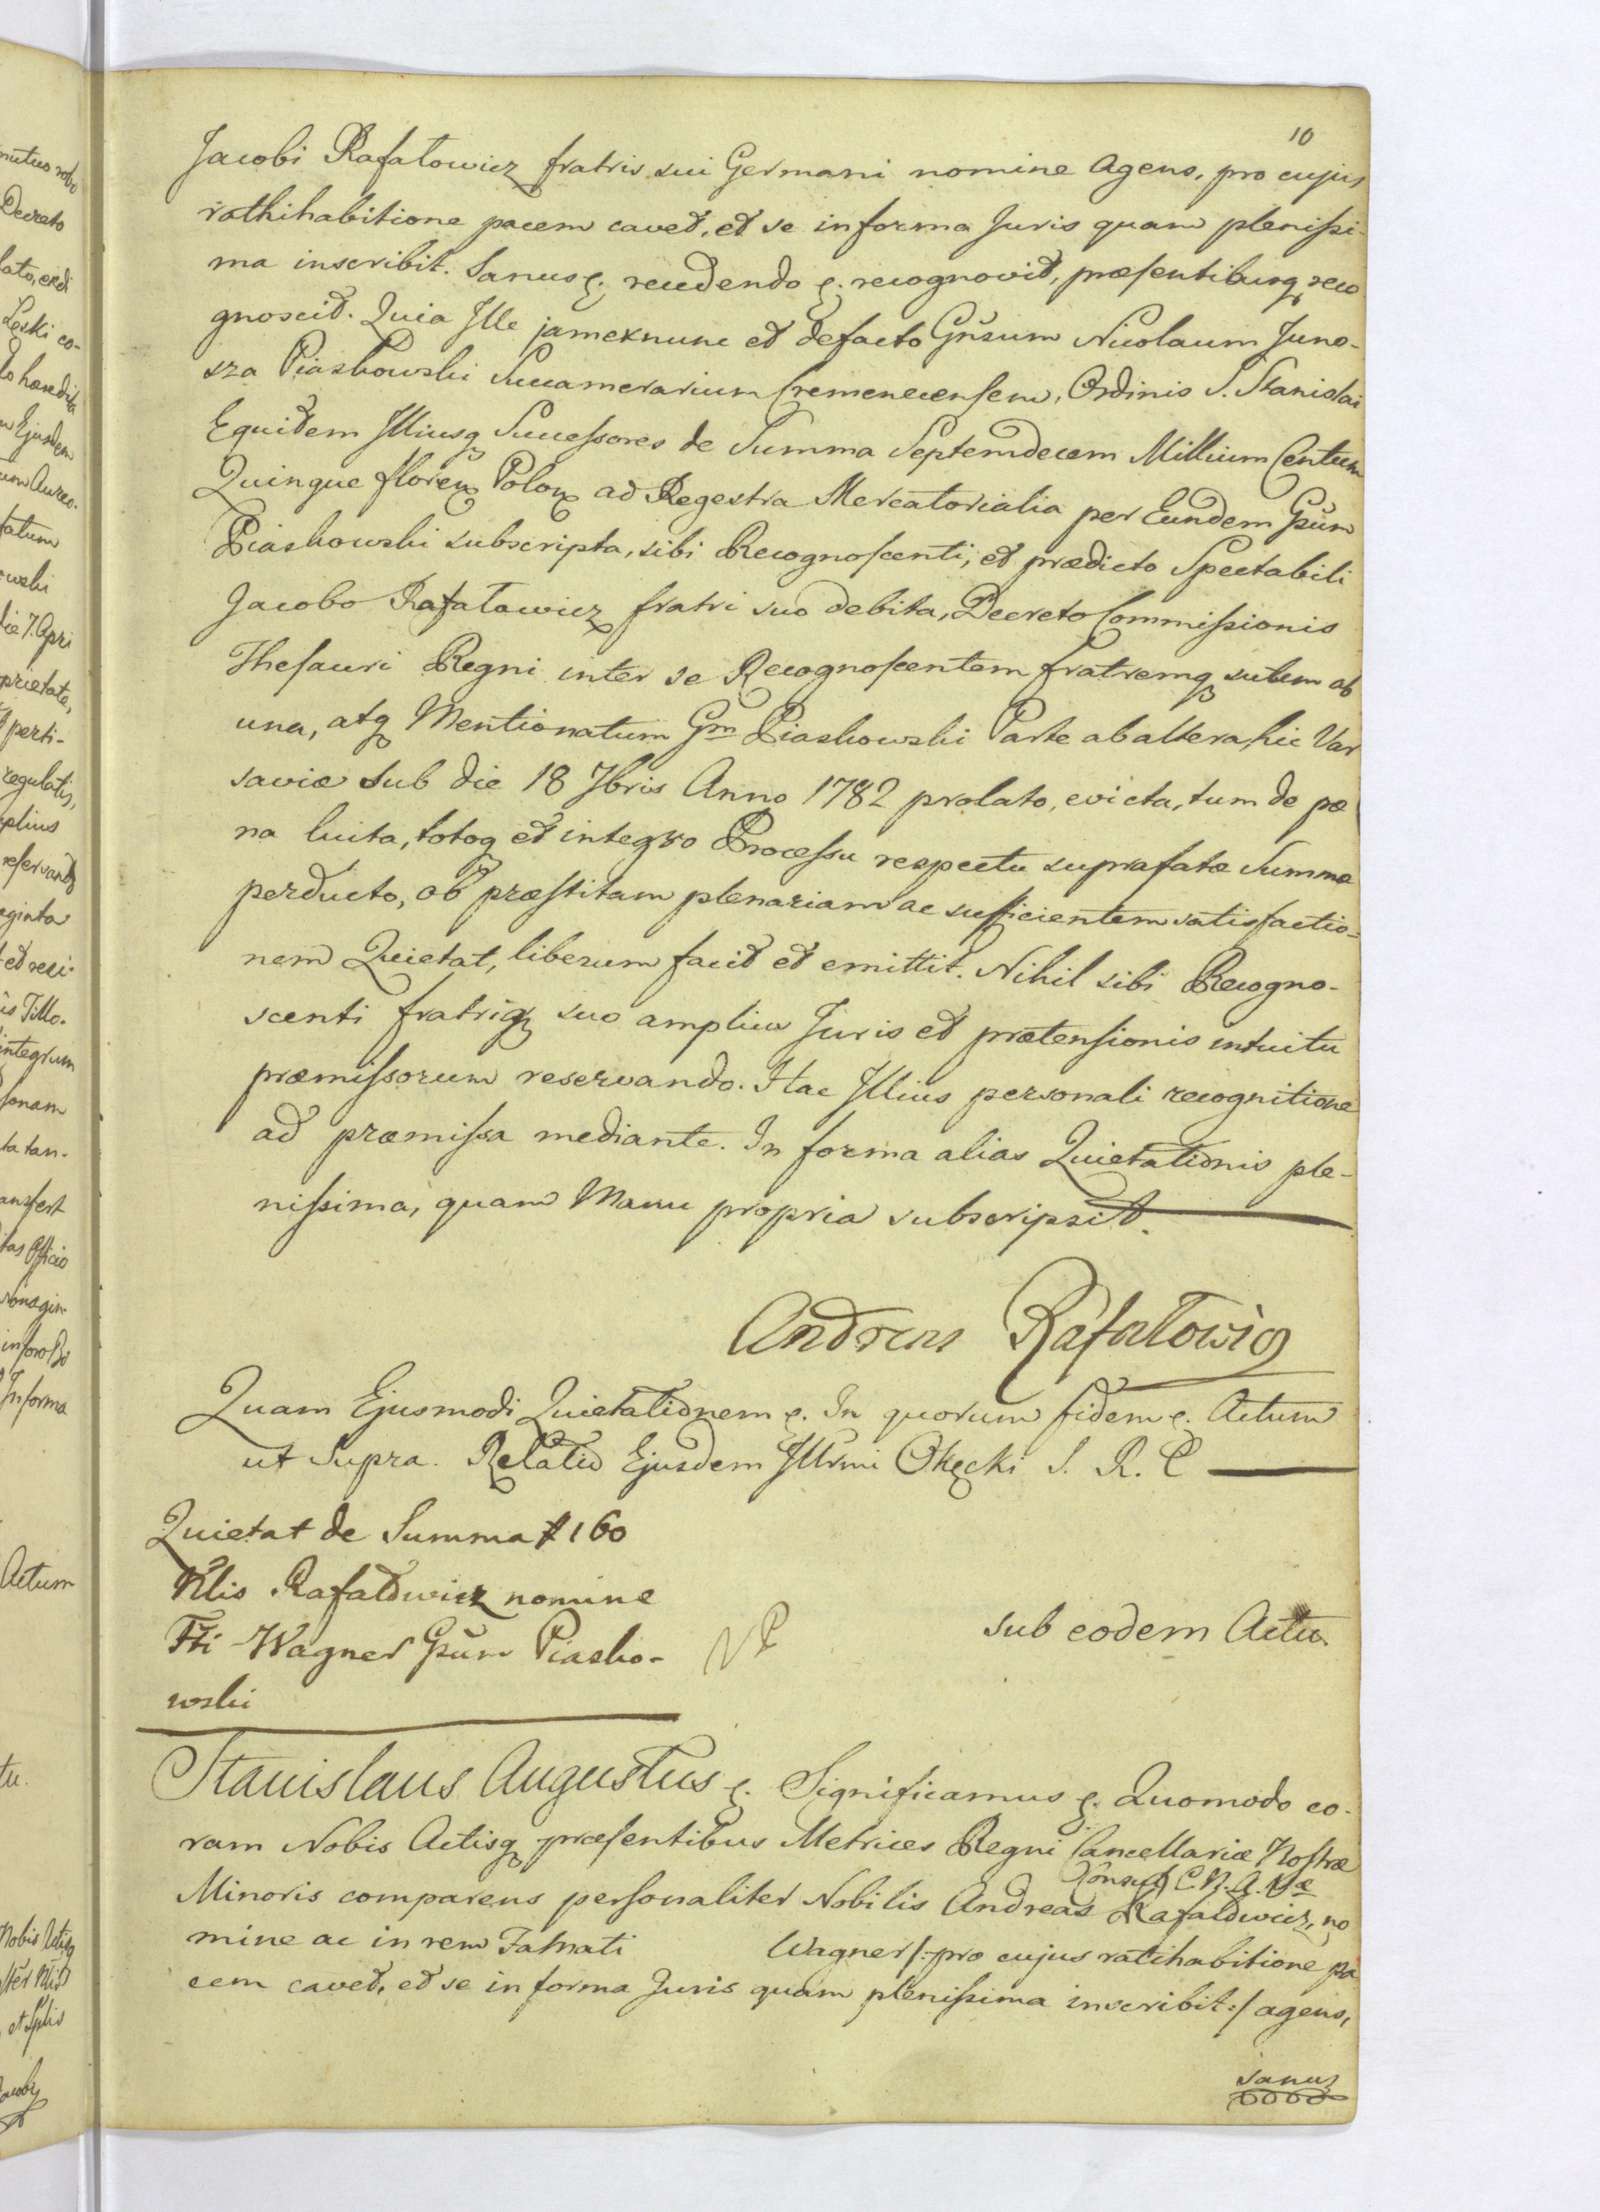 10
Jacobi Rafałowicz fratris sui Germani nomine agens, pro cujus
rathihabitione pacem cavet, et se in forma Juris quam plenissi-
ma inscribit. Sanus &. recedendo &. recognovit, præsentibusq reco
gnoscit. Quia Ille jam exnunc et defacto Gnsum Nicolaum Juno-
sza Piaskowski Succamerarium Cremenecensem, Ordinis S. Stanislai
Equitem Illiusq Successores de Summa Septemdecem Millium Centum
Quinque floren Polon ad Regestra Mercatorialia per Eundem Gsum
Piaskowski subscripta, sibi Recognoscenti, et prædicto Spectabili
Jacobo Rafałowicz fratri suo debita, Decreto Commissionis
Thesauri Regni inter se Recognoscentem fratremq suum ab
una, atq Mentionatum Gm Piaskowski Parte ab altera, hic Var
saviæ sub die 18 7bris Anno 1782 prolato, evicta, tum de pœ
na luita, totoq et integro Processu respectu suprafatæ Summæ
perducto, ob præstitam plenariam ac sufficientem satisfactio-
nem Quietat, liberum facit et emittit. Nihil sibi Recogno-
scenti fratriq suo amplius Juris et prætensionis intuitu
præmissorum reservando. Hac Illius personali recognitione
ad præmissa mediante. In forma alias Quietationis ple-
nissima, quam Manu propria subscripsit.
Andreas Rafałowicz
Quam Ejusmodi Quietationem &. In quorum fidem &. Actum
ut Supra. Relatio Ejusdem Illrmi Okęcki S. R. C
Quietat de Summa # 160
Nlis Rafałowicz nomine
Fti Wagner Gsum Piasko-
wski
sub eodem Actu.
Stanislaus Augustus &. Significamus &. Quomodo co-
ram Nobis Actisq præsentibus Metrices Regni Cancellariæ Nostræ
Minoris comparens personaliter Nobilis Andreas Rafałowicz, no
mine ac in rem Famati Wagner /: pro cujus ratihabitione pa
cem cavet, et se in forma Juris quam plenissima inscribit :/ agens,
sanus